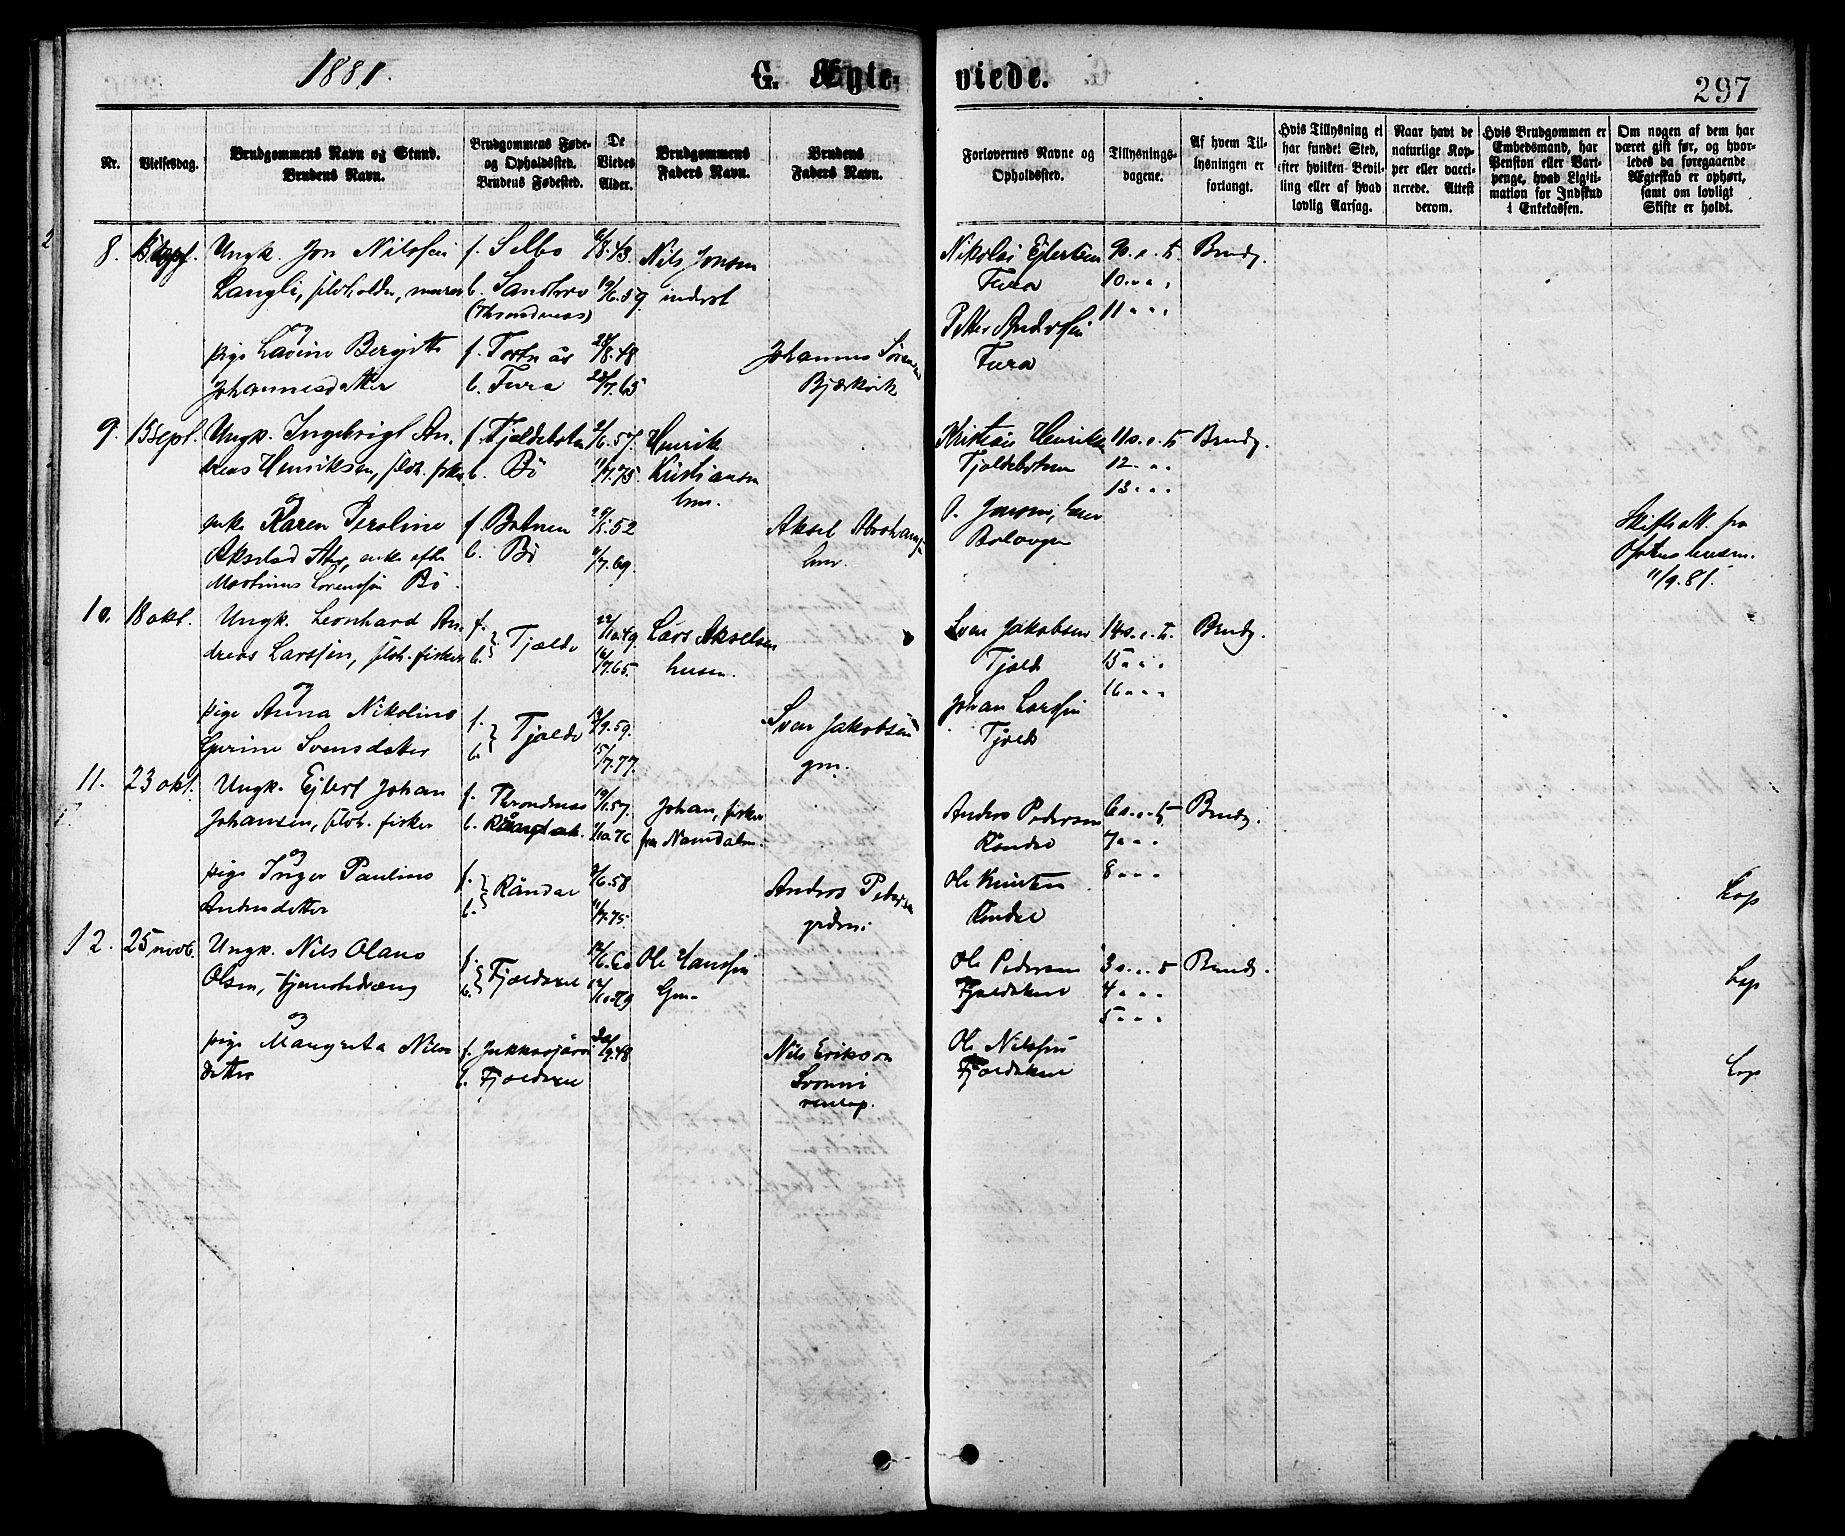 1881.
G. Ægte-
viede.
297
Nr.
Vielsesdag.
Brudgommens Navn og Stand.
Brudens Navn.
Brudgommens Føde-
og Opholdssted.
Brudens Fødested.
De
Viedes
Alder.
Brudgommens
Faders Navn.
Brudens
Faders Navn.
Forlovernes Navne og
Opholdssted.
Tillysnings-
dagene.
Af hvem Til-
lysningen er
forlangt.
Hvis Tillysning ei
har fundet Sted,
efter hvilken Bevil-
ling eller af hvad
lovlig Aarsag.
Naar havt de
naturlige Kop-
per eller vacci-
nerede. Attest
derom.
Hvis Brudgommen er
Embedsmand, har
Pension eller Vart-
penge, hvad Ligiti-
mation for Indskud
i Enkekassen.
Om nogen af dem har
været gift før, og hvor-
ledes da foregaaende
Ægteskab er ophørt,
samt om lovligt
Skifte er holdt.
8.
Ungk. Jon Nilssen
Langli, selvholdn, murer
og
pige Lavine Bergitte
Johannesdatter
f. Selbo
b. Sandtorv
(Throndenæs)
f. Tortn ås
b. Fura
8.43.
6.59.
28/8.48
7.65
Nils Jonsen
inderst
Johannes Sørensen
Bjerkvik
Nikolai Ejlertsen
Fura
Petter Andersen
Fura
9 s. e. tr.
10 " " "
11 " " "
Brudg.
9. 13 sept.
Ungk. Ingebrigt An-
dreas Henriksen, selvh. fisker
og
enke Karen Peroline
Akselsd. enke efter
Martinus Lorenssen Bø.
f. Fjeldebotn
b. Bø
f. Botnen
b. Bø
2/6.57.
11/7.75.
1.52
11/7.69.
Henrik
Kristiansen
hm.
Aksel Abrahamsen
hm.
Kristian Henriksen
Fjeldebotnen
P. Jensen,
Balangen
11 s. e. tr.
12 " "
13 " "
Brudg.
Skifteatt. fra
Ofotens
11/9.81.
10. 18 okt.
Ungk. Leonhard An-
dreas Larssen, selvh. fisker
og
pige Anna Nikoline
Gurine Svensdatter
f.
b. } Tjelde
f.
b. } Tjelde
22/10.49.
7.65.
9.59.
15/7.77.
Lars Akselsen
husm.
Sven Jakobsen
gm.
Sven Jakobsen
Tjeld
Johan Larssen
Tjeld
14 s. e. tr.
15 " "
16 " "
Brudg.
11. 23 okt.
Ungk. Ejlert Johan
Johansen, selvh. fisker
og
pige Inger Pauline
Andersdatter
f. Throndenæs
b.
f.
b. } Råndal
19/1.57.
10.76
6.58
11/7.75.
Johan, fisker
fra Namdalen.
Anders Pedersen
Anders Pedersen
Råndal
Ole Knutsen
Råndal
6 s. e. tr.
7 " "
8 " "
Brudg.
Lap
12. 25 novb.
Ungk. Nils Olaus
Olsen, tjenestedreng
og
pige Margreta Nils-
datter
f.
b. } Fjeldaxel
f. Jukkasjärvi
b. Fjeldaxel
6.60
10.79
9.48
Ole Hanssen
Gm.
Nils Erikson
Svonni
Ole Pedersen
Fjeldaksel
Ole Nilssen
Fjeldaksel
3 s. e. tr.
4 " "
5 " "
Brudg.
Lap
Lap